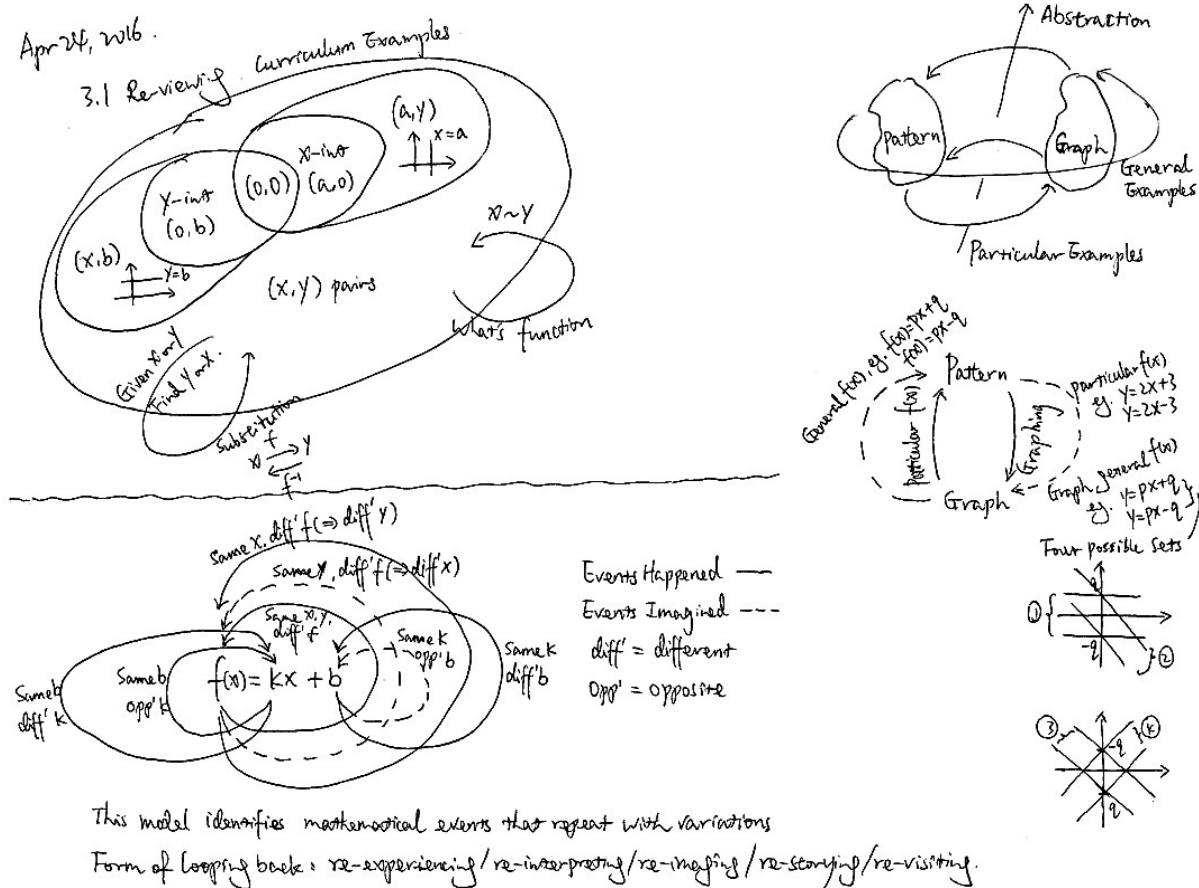 Apr 24, 2016.
3.1 Re-viewing curriculum Examples
(a,y)
x=a
x-int
(a,0)
(0,0)
y-int
(0,b)
(x,b)
y=b
(x,y) pairs
x~y
What's function
Given x or y
Find y or x.
Substitution
f
x y
f⁻¹
Abstraction
Pattern
Graph
General
Examples
Particular Examples
General f(x), eg. f(x)=px+q
f(x)=px-q
Pattern
Particular f(x)
Graphing
particular f(x)
eg. y=2x+3
y=2x-3
Graph
Graph general f(x)
eg. y=px+q
y=px-q
Four possible sets
q
①
-q
②
③
④
-q
q
Same x, diff' f (⇒ diff' y)
Same y, diff' f (⇒ diff' x)
Same x,y,
diff' f
Same k
opp' b
Same k
diff' b
Same b
diff' k
Same b
opp' k
f(x) = kx + b
Events Happened —
Events Imagined ---
diff' = different
opp' = opposite
This model identifies mathematical events that repeat with variations
Form of Looping back: re-experiencing/re-interpreting/re-imaging/re-storying/re-visiting.